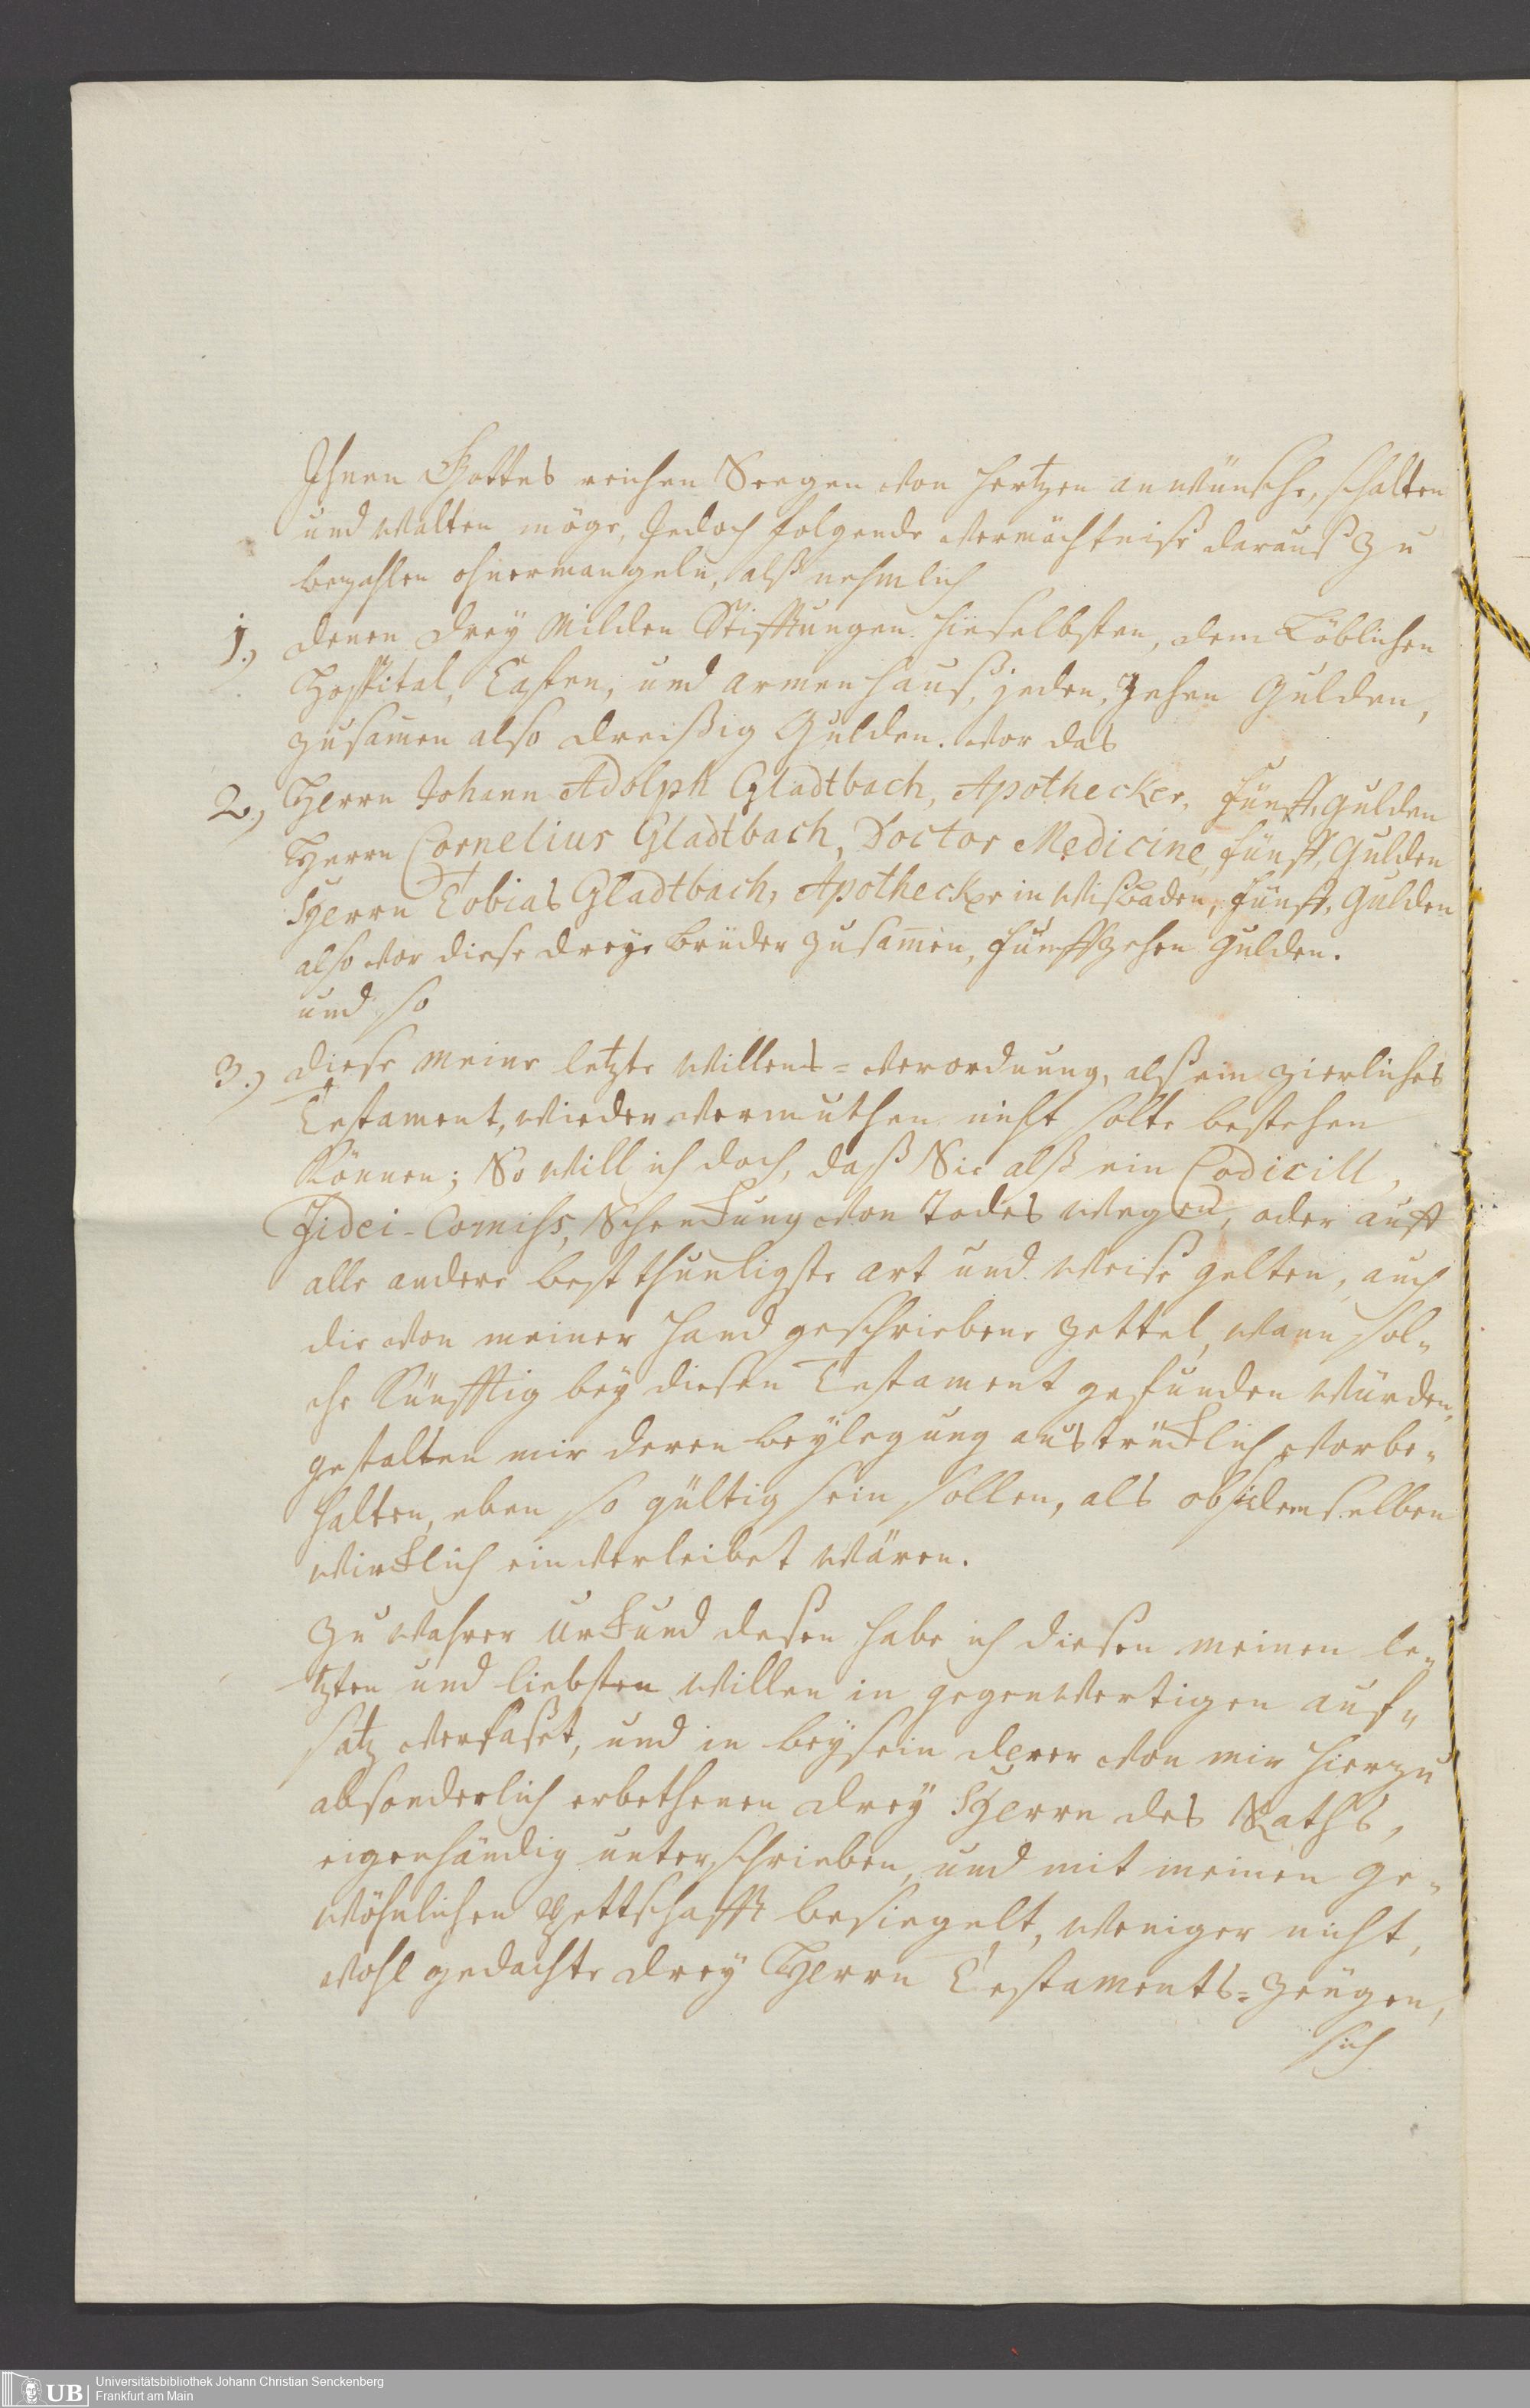 Ihnen Gottes reichen Seegen von Hertzen anwünsche, schalten
und walten möge, Jedoch folgende vermächtniße darauß zu
bezahlen ohnermangeln, alß nehmlich
1.) denen drey Milden Stifftungen hieselbsten, dem Löblichen
Hospital, Casten, und armen hauß, jeden, Zehen Gulden,
zusam̅en also dreißig Gulden. vor das
2.) Herrn Johann Adolph Gladtbach, Apothecker, fünff, gulden
Herrn Cornelius Gladtbach, Doctor Medicine, fünff, Gulden
Herrn Tobias Gladtbach, Apothecker in Wisbaden, fünff, Gulden
also vor diese dreye brüder zusam̅en, fünffzehen Gulden.
und so
3.) diese meine letzte willens=verordnung, alß ein zierliches
Testament, wieder vermuthen nicht solte bestehen
können; So will ich doch, daß Sie alß ein Codicill,
Fidei-Comiss, Schenckung von Todes wegen, oder auff
alle andere best thunligste art und weise gelten, auch
die von meiner Hand geschriebene zettel, wann sol„
che künfftig bey diesen Testament gefunden würden,
gestalten mir deren beylegung austrücklich vorbe„
halten, eben so gültig sein sollen, als ob sie demselben
wircklich einverleibet wären.
Zu wahrer urkund deßen habe ich diesen meinen le„
tzten und liebsten willen in gegenwertigen auf„
satz verfaßet, und in beysein derer von mir hierzu
absonderlich erbethenen drey Herrn des Raths,
eigenhändig unterschrieben, und mit meinen ge„
wöhnlichen Pettschafft besiegelt, weniger nicht,
wohl gedachte drey Herrn Testaments=Zeügen,
sich
UB
Universitätsbibliothek Johann Christian Senckenberg
Frankfurt am Main